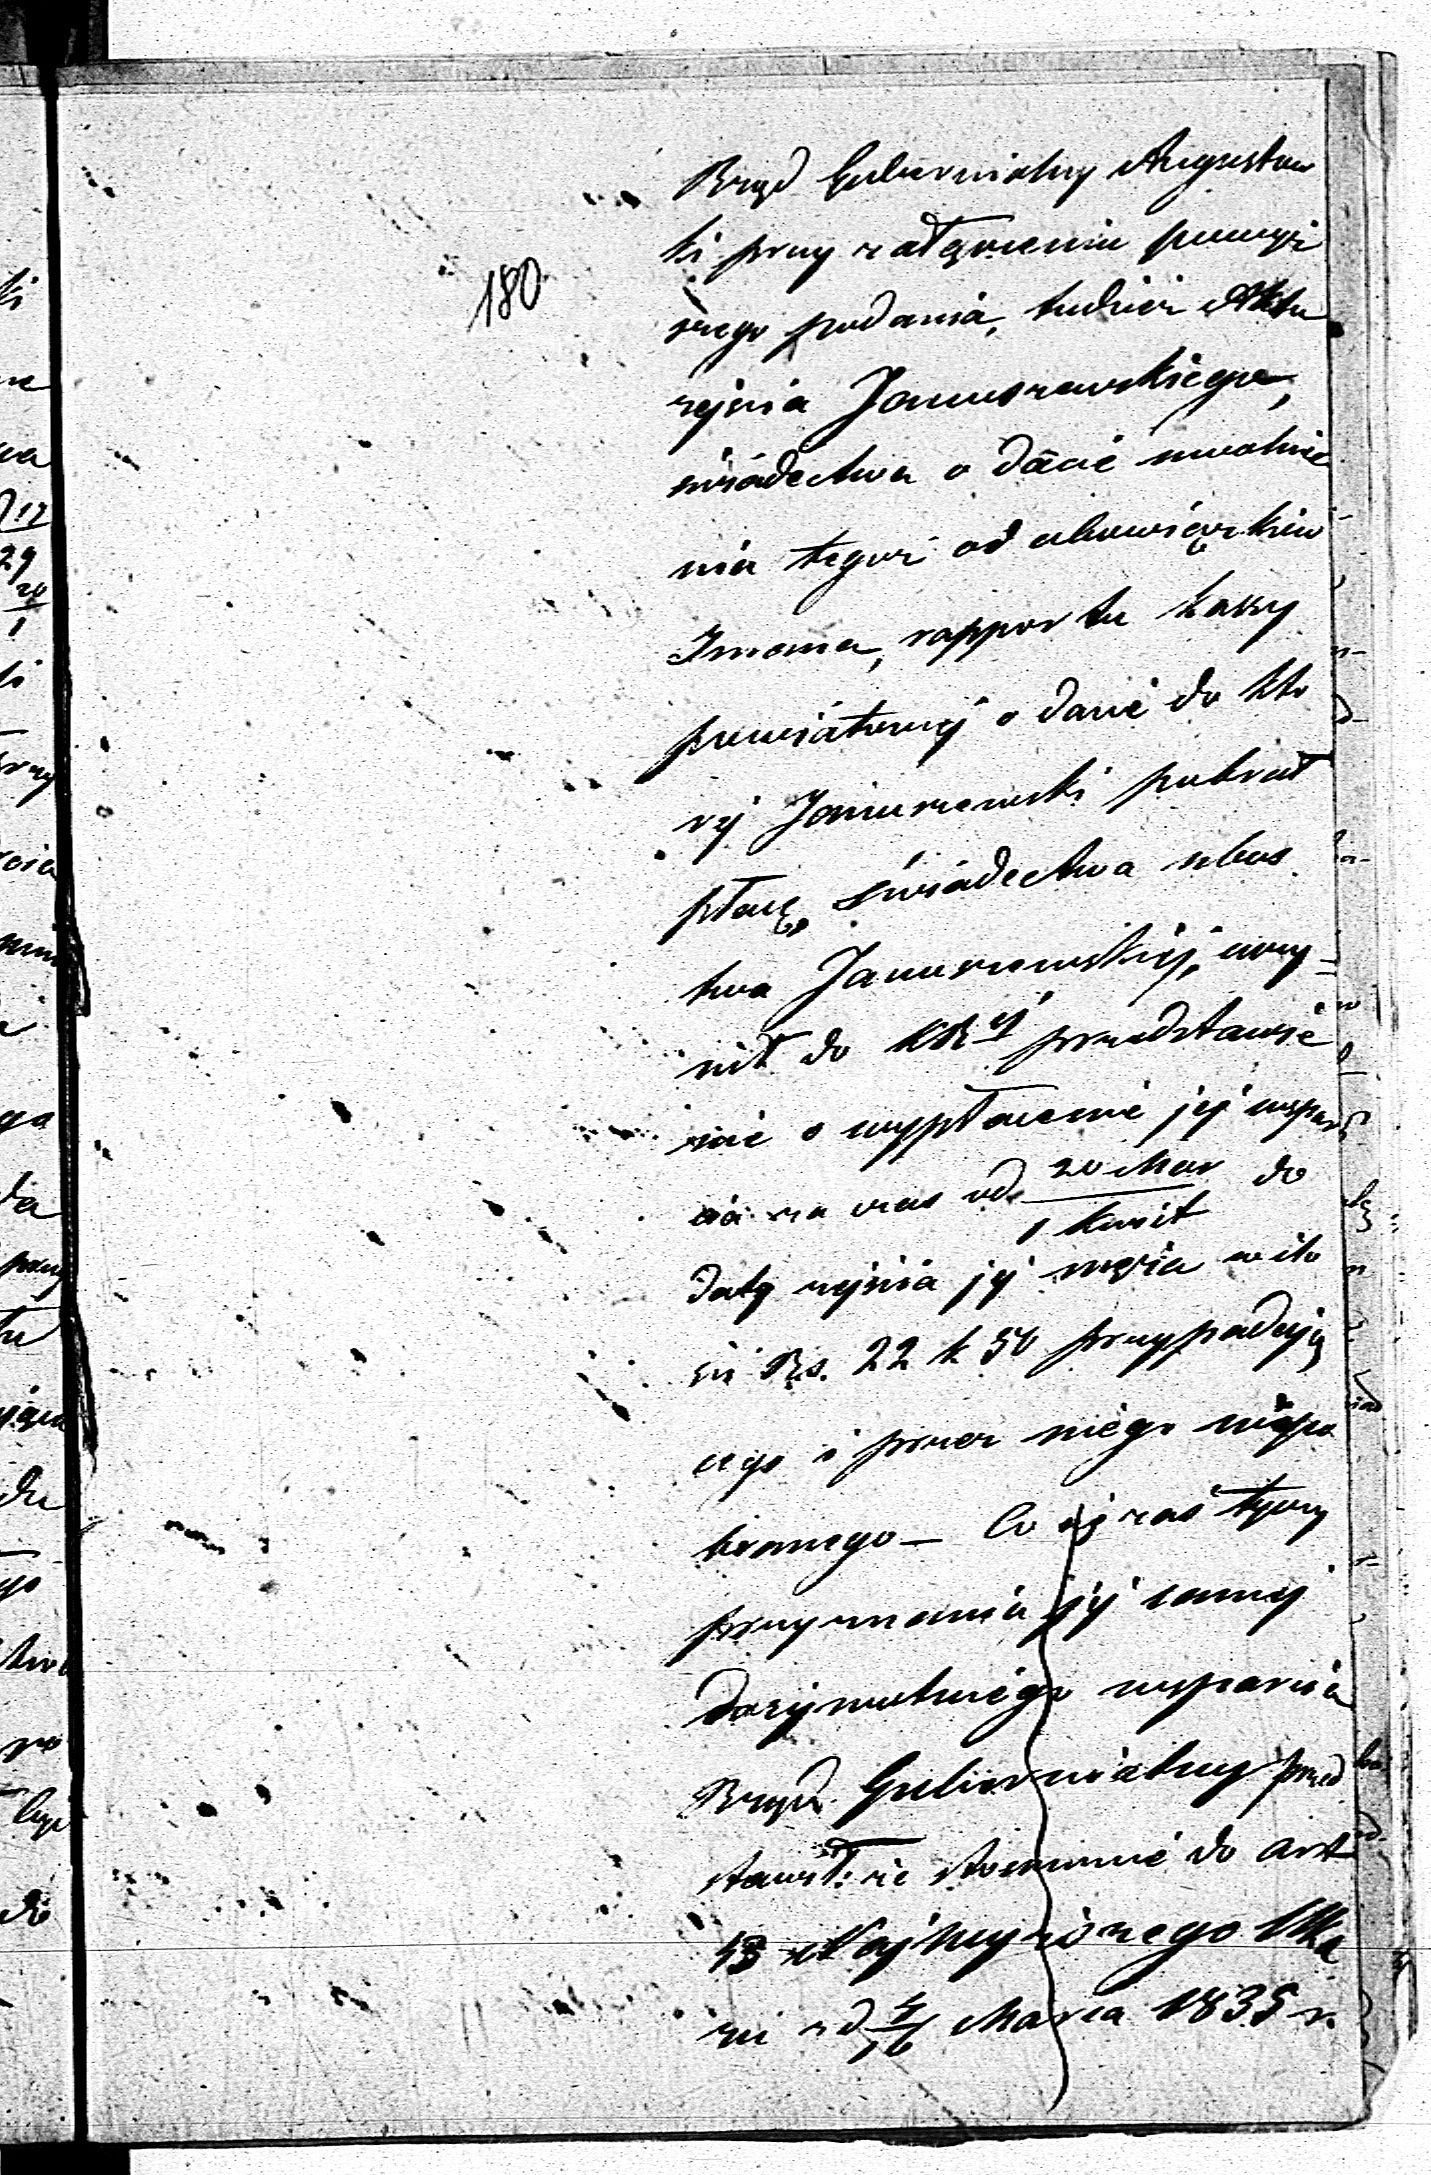 180
Rząd Gubernialny Augustow
ki przy załączeniu powyż
szego podania, tudzież Aktu
zejścia Januszewskiego,
świadectwa o dacie uwolnie
nia tegoż od obowiązków
Imana, rapportu kassy
powiatowej o dacie do któ
réj Januszewski pobrał
płacę, świadectwa ubós
twa Januszewskiéj, uczy-
nił do KR éj przedstawie
nie o wypłacenie jéj wspar
cia za czas od 20 Mar do
1 Kwit
daty zejścia jéj męża w ilo
ści Rs. 22 k 50 przypadają
cego i przez niego niepo
branego — Co zaś tyczy
przyznania jéj samej
dożywotniego wsparcia
Rząd Gubernialny przed
stawił: że stosownie do art
13 Najwyższego Uka
zu z d 4/16 Marca 1835 r.